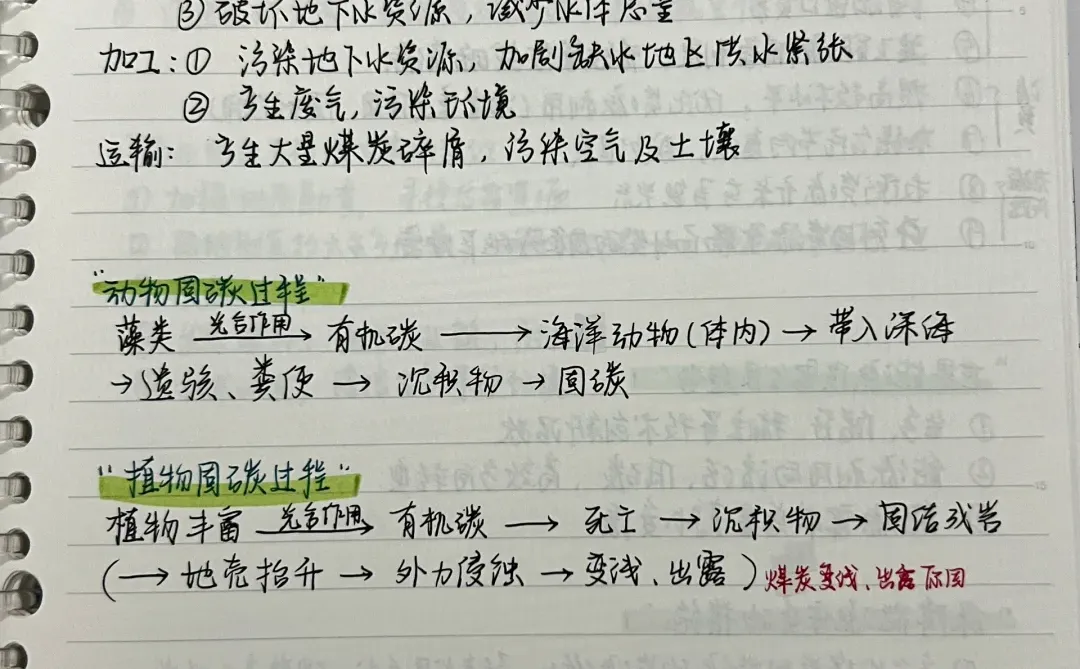 ③ 破坏地下水资源，减少水体总量
加工：① 污染地下水资源，加剧缺水地区供水紧张
② 产生废气，污染环境
运输：产生大量煤炭碎屑，污染空气及土壤
"动物固碳过程"
藻类 光合作用→ 有机碳 → 海洋动物(体内) → 带入深海
→遗骸、粪便 → 沉积物 → 固碳
"植物固碳过程"
植物丰富 光合作用→ 有机碳 → 死亡 → 沉积物 → 固结成岩
(→ 地壳抬升 → 外力侵蚀 → 变浅、出露) 煤炭变浅、出露原因